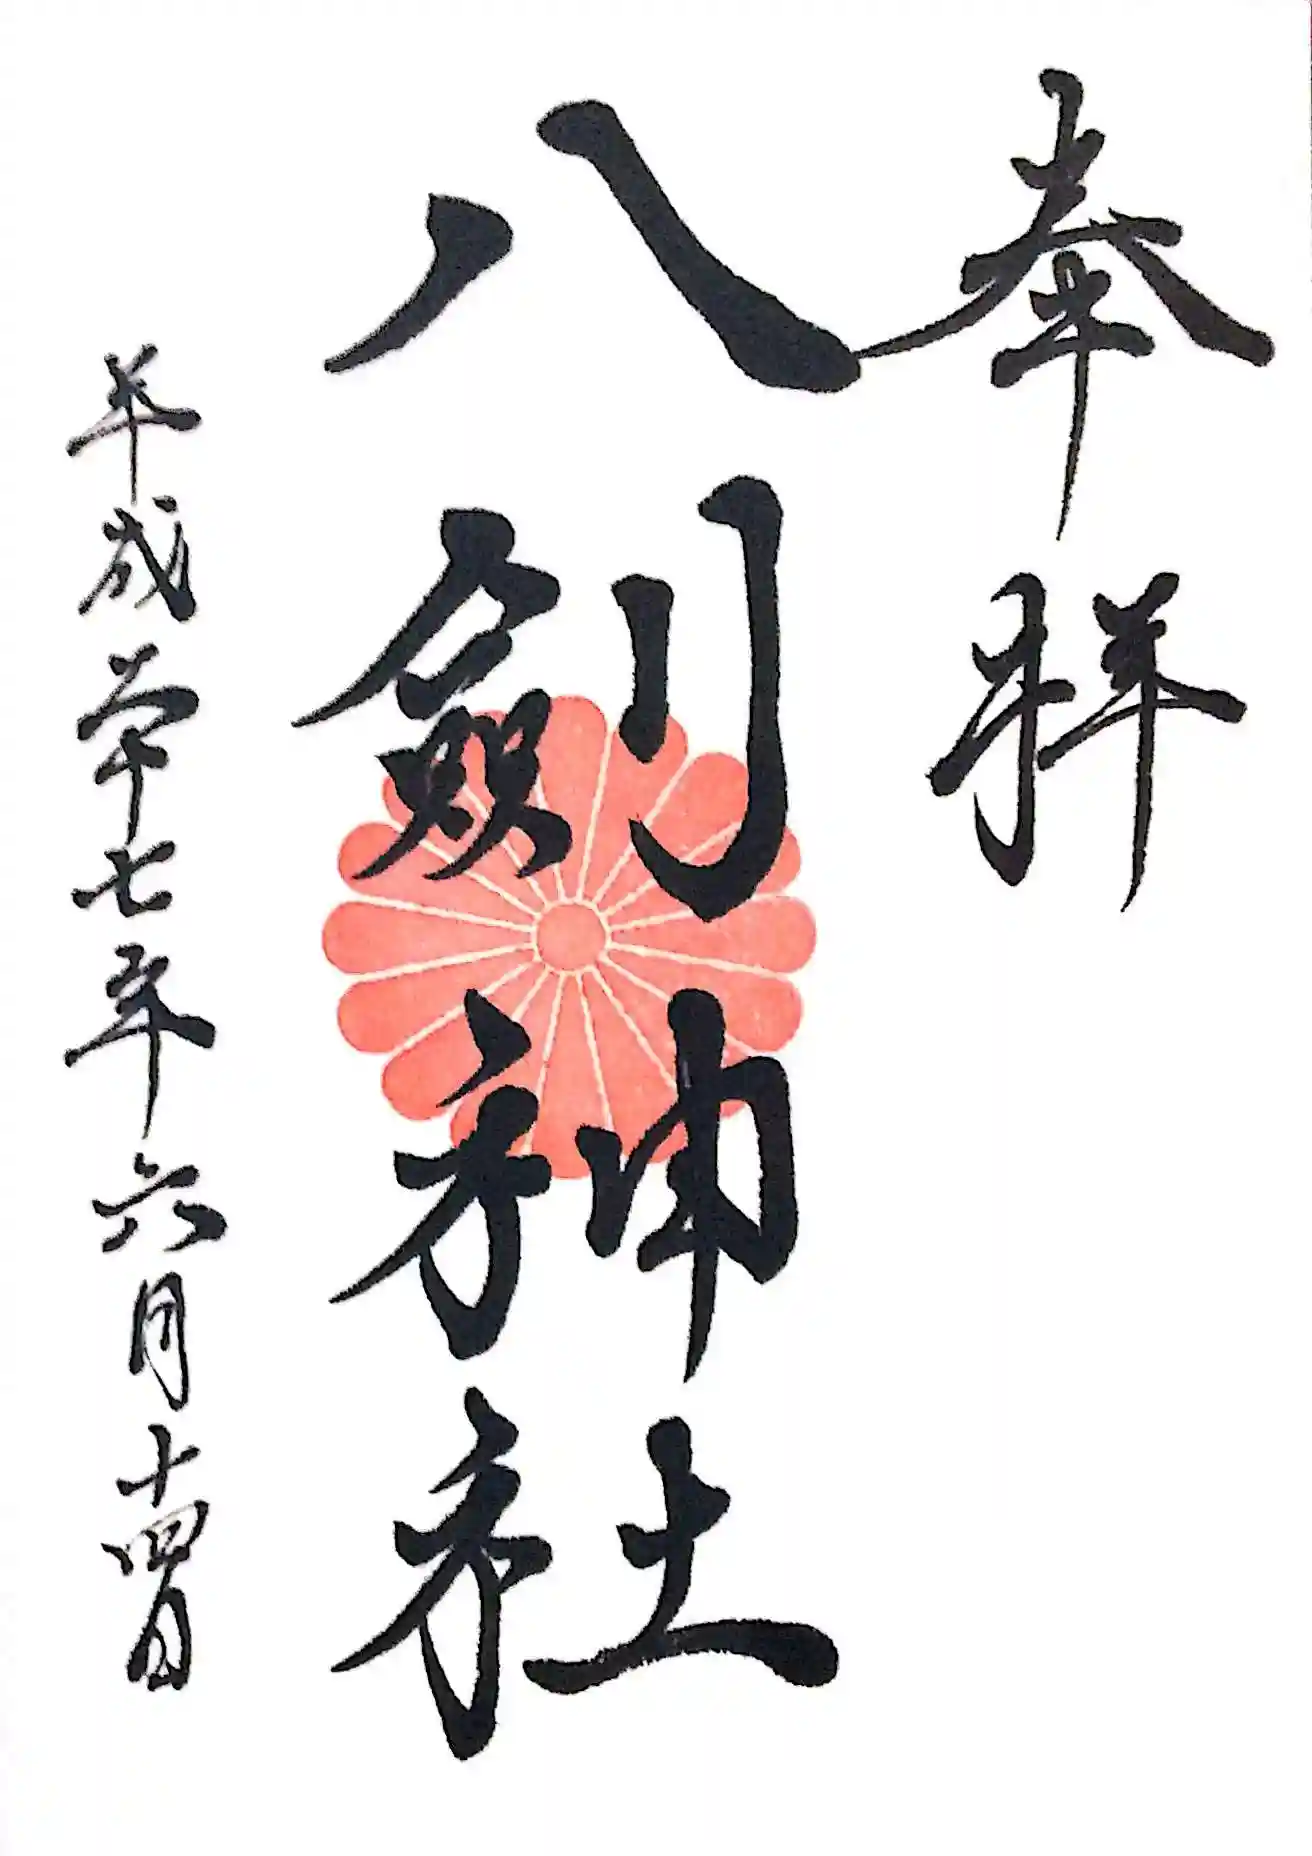 奉拝
八劔神社
平成二十七年六月十四日